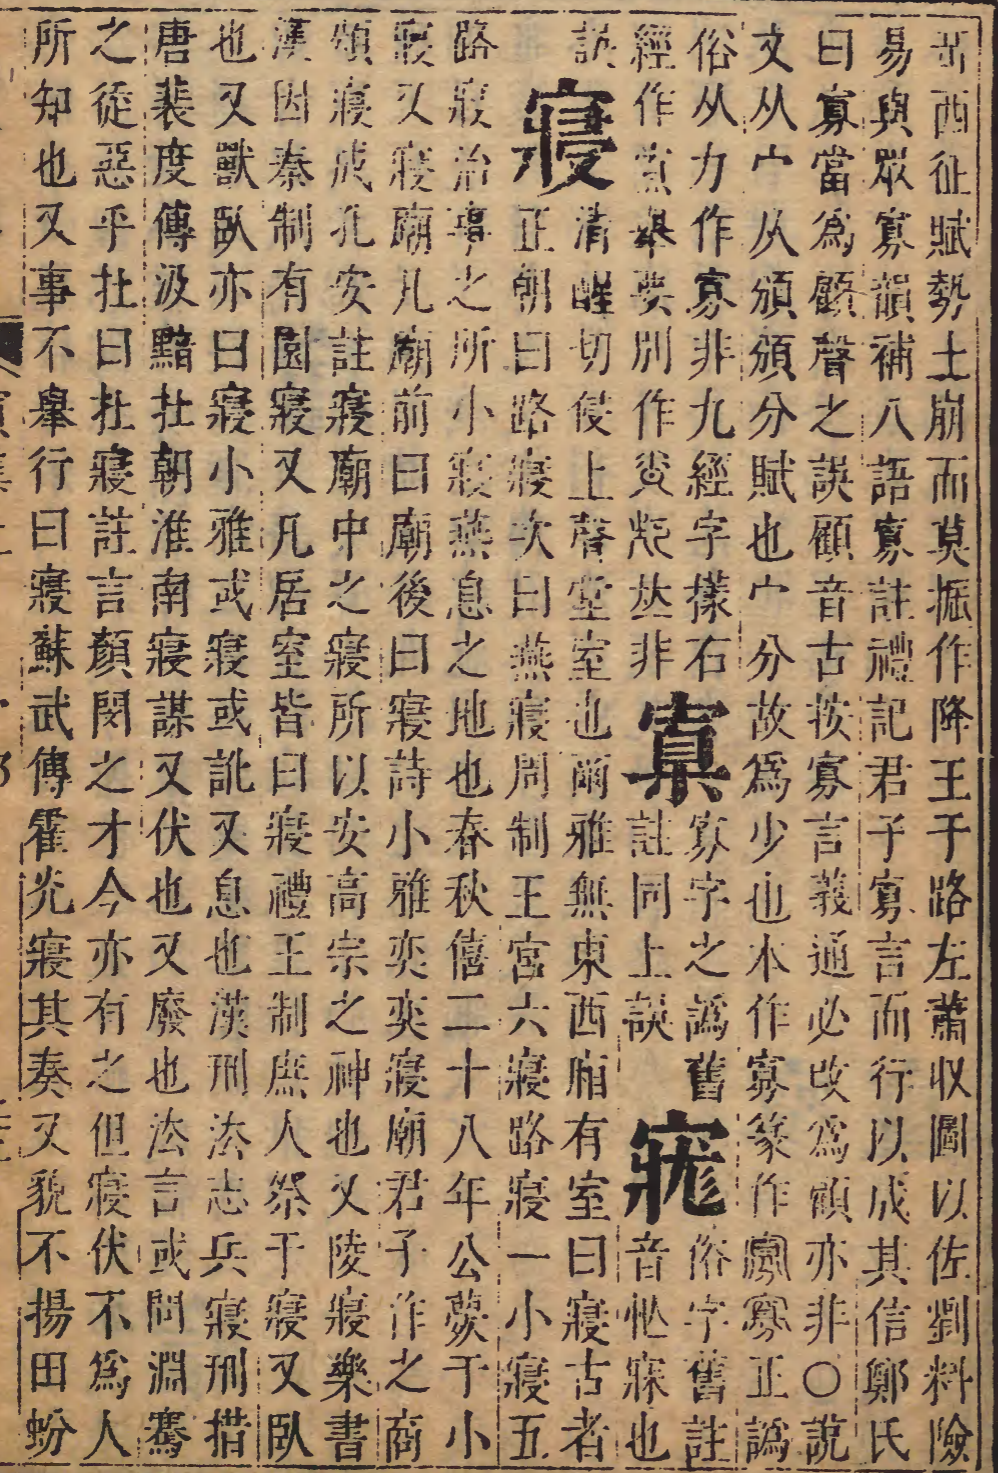 岳西征賦勢土崩而莫振作降王于路左蕭収圖以佐劉料險
易與眾寡韻補八語寡註禮記君子寡言而行以成其信鄭氏
曰寡當爲顧聲之誤顧音古按寡言義通必改爲顧亦非○說
文从宀从頒頒分賦也宀分故爲少也本作寡篆作寡正譌
俗从力作寡非九經字㨾石寘寡字之譌舊註
經作⿱舉要別作非寘註同上誤寱俗字舊註音忙寐也
誤寢清醒切侵上聲堂室也爾雅無東西廂有室曰寢古者
正朝曰路寢次曰燕寢周制王宮六寢路寢一小寢五
路寢治事之所小寢燕息之地也春秋僖二十八年公薨于小
寢又寢廟凡廟前曰廟後曰寢詩小雅奕奕寢廟君子作之商
頌寢成孔安註寢廟中之寢所以安高宗之神也又陵寢樂書
漢因秦制有園寢又凡居室皆曰寢禮王制庶人祭于寢又臥
也又獸臥亦曰寢小雅或寢或訛又息也漢刑法志兵寢刑措
唐裴度傳汲黯在朝淮南寢謀又伏也又廢也法言或問淵騫
之徒惡乎在曰在寢註言顏閔之才今亦有之但寢伏不爲人
所知也又事不舉行曰寢蘇武傳霍光寢其奏又貌不揚田蚡